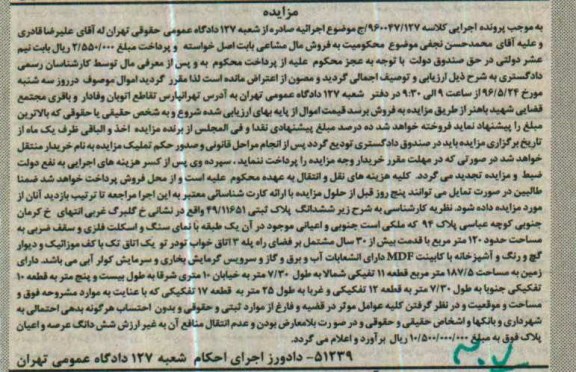 مزایده
به موجب پرونده اجرایی کلاسه ۹۶۰۰۴۷/۱۲۷/ج موضوع اجرائیه صادره از شعبه ۱۲۷ دادگاه عمومی حقوقی تهران له آقای علیرضا قادری
و علیه آقای محمدحسن نجفی موضوع محکومیت به فروش مال مشاعی بابت اصل خواسته و پرداخت مبلغ ۲/۵۵۰/۰۰۰ ریال بابت نیم
عشر دولتی در حق صندوق دولت با توجه به عجز محکوم علیه از پرداخت محکوم به و پس از معرفی مال توسط کارشناسان رسمی
دادگستری به شرح ذیل ارزیابی و توصیف اجمالی گردید و مصون از اعتراض مانده است لذا مقرر گردید اموال موصوف در روز سه شنبه
مورخ ۹۶/۵/۲۴ از ساعت ۹ الی ۹:۳۰ در دفتر شعبه ۱۲۷ دادگاه عمومی تهران به آدرس تهرانپارس تقاطع اتوبان وفادار و باقری مجتمع
قضایی شهید باهنر از طریق مزایده به فروش برسد قیمت اموال از پایه بهای ارزیابی شده شروع و به شخص حقیقی یا حقوقی که بالاترین
مبلغ را پیشنهاد نماید فروخته خواهد شد ده درصد مبلغ پیشنهادی نقدا و فی المجلس از برنده مزایده اخذ و الباقی ظرف یک ماه از
تاریخ برگزاری مزایده باید در صندوق دادگستری تودیع گردد پس از انجام مراحل قانونی و صدور حکم تملیک مزایده به نام خریدار منتقل
خواهد شد در صورتی که در مهلت مقرر خریدار وجه مزایده را پرداخت ننماید . سپرده وی پس از کسر هزینه های اجرایی به نفع دولت
ضبط و مزایده تجدید می گردد. کلیه هزینه های نقل و انتقال به عهده محکوم علیه است و از محل فروش پرداخت خواهد شد ضمنا
طالبین در صورت تمایل می توانند پنج روز قبل از حلول مزایده با ارائه کارت شناسائی معتبر به این اجرا مراجعه تا ترتیب بازدید آنان از
مورد مزایده داده شود. نظریه کارشناسی به شرح زیر ششدانگ پلاک ثبتی ۴۹/۱۱۶۵۱ واقع در نشانی خ گلبرگ غربی انتهای خ کرمان
جنوبی کوچه عباسی پلاک ۹۴ که ملکی است جنوبی و اعیانی موجود در آن یک طبقه با نمای سنگ و اسکلت فلزی و سقف ضربی به
مساحت حدود ۱۲۰ متر مربع با قدمت بیش از ۳۰ سال مشتمل بر فضای راه پله ۳ اتاق خواب تودر تو یک اتاق تک با کف موزائیک و دیوار
گچ و رنگ و آشپزخانه با کابینت MDF دارای انشعابات آب و برق و گاز و سرویس گرمایش بخاری و سرمایش کولر آبی می باشد. دارای
زمین به مساحت ۱۸۷/۵ متر مربع قطعه ۱۱ تفیکی شمالا به طول ۷/۳۰ متر به خیابان ۱۰ متری شرقا به طول بیست و پنج متر به قطعه ۱۰
تفکیکی جنوبا به طول ۷/۳۰ متر به قطعه ۱۲ تفکیکی و غربا به طول ۲۵ متر به قطعه ۱۷ تفکیکی که با عنایت به موارد مشروحه فوق و
مساحت و موقعیت و در نظر گرفتن کلیه عوامل موثر در قضیه و فارغ از موارد ثبتی و حقوقی و بدون احتساب هرگونه بدهی احتمالی به
شهرداری و بانکها و اشخاص حقیقی و حقوقی و در صورت بلامعارض بودن و عدم انتقال منافع آن به غیر ارزش شش دانگ عرصه و اعیان
پلاک فوق به مبلغ ۱۰/۵۰۰/۰۰۰/۰۰۰ ریال برآورد و اعلام می گردد.
۵۱۲۳۹- دادورز اجرای احکام شعبه ۱۲۷ دادگاه عمومی تهران